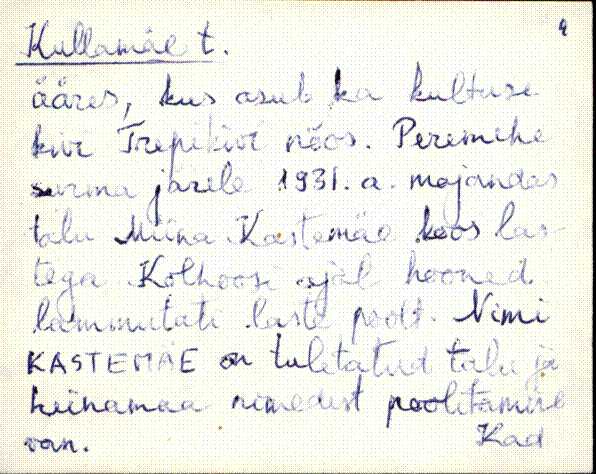 Kullamäe t. 4
ääres, kus asub ka kultuse
kivi Trepikivi näos. Peremehe
surma järele 1931. a. majandas
talu Miina Kastemäe koos las-
tega Kolhoosi ajal hooned
lammutati laste poolt. Nimi
KASTEMÄE on tuletatud talu ja
heinamaa nimedest poolitamise
van. Kad